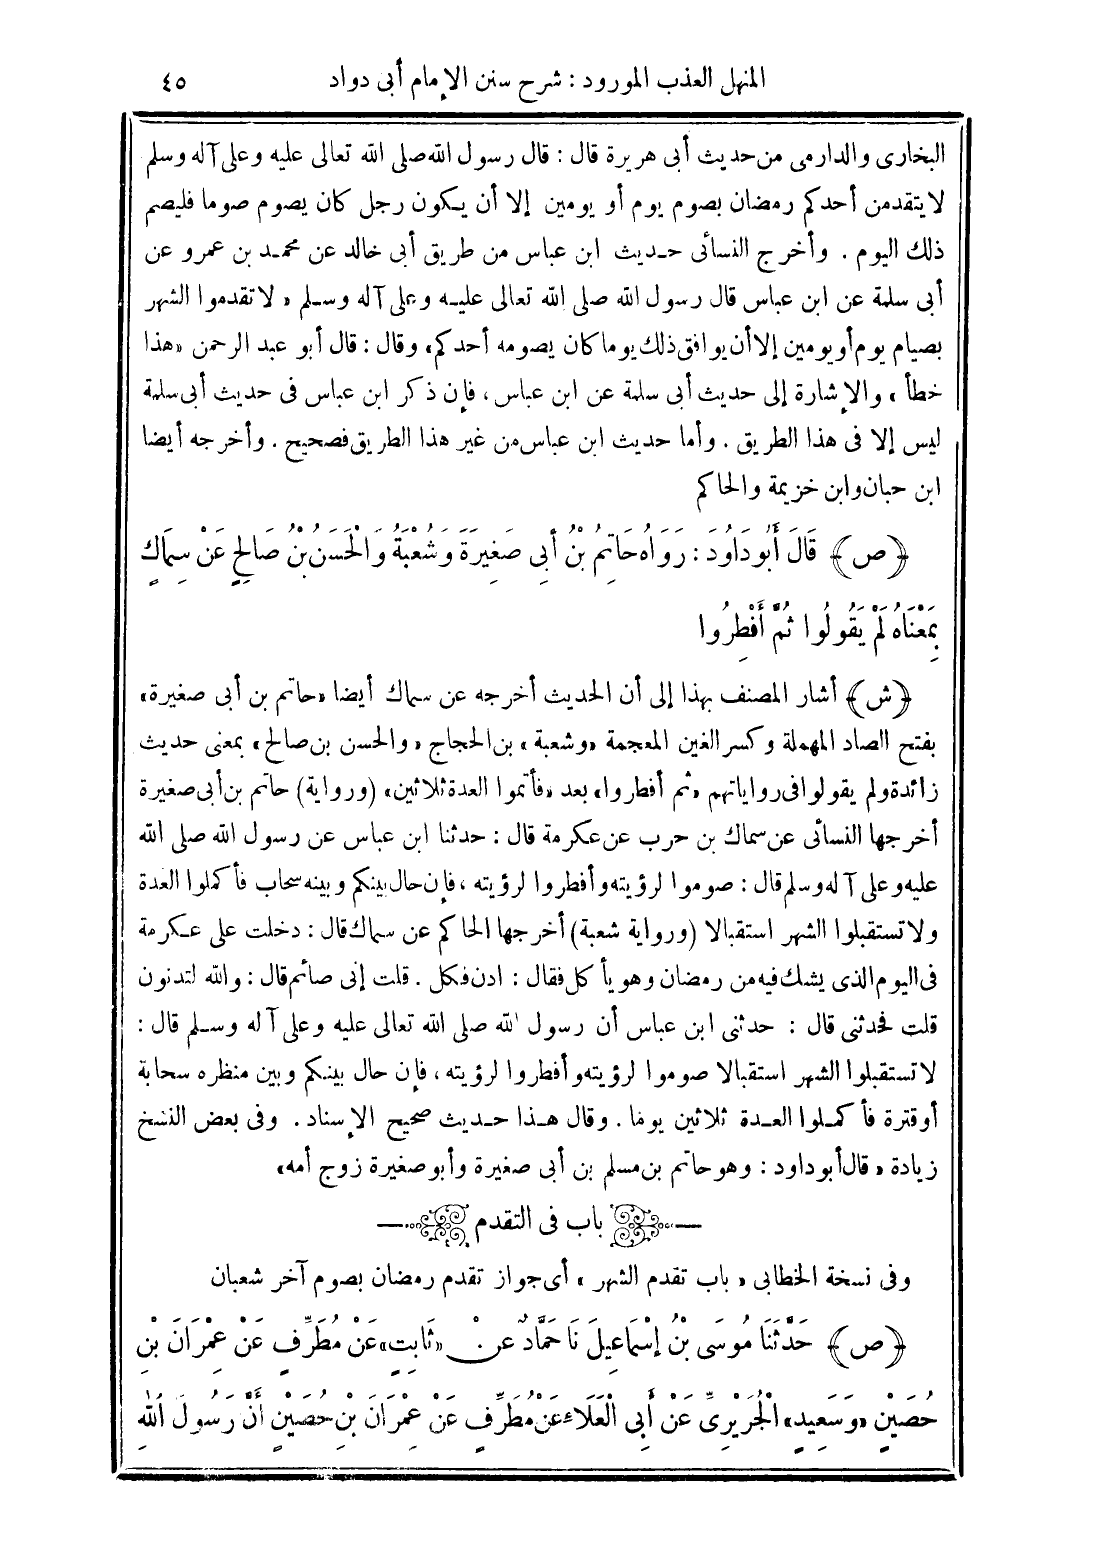 المنهل العذب المورود : شرح سنن الإمام أبى دواد ٤٥
البخارى والدارمى من حديث أبى هريرة قال : قال رسول الله صلى الله تعالى عليه وعلى آله وسلم
لا يتقدمن أحدكم رمضان بصوم يوم أو يومين إلا أن يكون رجل كان يصوم صوما فليصم
ذلك اليوم . وأخرج النسائى حديث ابن عباس من طريق أبى خالد عن محمد بن عمرو عن
أبى سلمة عن ابن عباس قال رسول الله صلى الله تعالى عليه وعلى آله وسلم « لا تقدموا الشهر
بصيام يوم أو يومين إلا أن يوافق ذلك يوما كان يصومه أحدكم» وقال : قال أبو عبد الرحمن «هذا
خطأ » والإشارة إلى حديث أبى سلمة عن ابن عباس ، فإن ذكر ابن عباس فى حديث أبى سلمة
ليس إلا فى هذا الطريق . وأما حديث ابن عباس من غير هذا الطريق فصحيح . وأخرجه أيضا
ابن حبان وابن خزيمة والحاكم
﴿ص﴾ قَالَ أَبُو دَاوُدَ : رَوَاهُ حَاتِمُ بْنُ أَبِى صَغِيرَةَ وَشُعْبَةُ وَالْحَسَنُ بْنُ صَالِحٍ عَنْ سِمَاكٍ
بِمَعْنَاهُ لَمْ يَقُولُوا ثُمَّ أَفْطِرُوا
﴿ش﴾ أشار المصنف بهذا إلى أن الحديث أخرجه عن سماك أيضا «حاتم بن أبى صغيرة»
بفتح الصاد المهملة وكسر الغين المعجمة «وشعبة» بن الحجاج «والحسن بن صالح» بمعنى حديث
زائدة ولم يقولوا فى رواياتهم «ثم أفطروا» بعد «فأتموا العدة ثلاثين» (ورواية) حاتم بن أبى صغيرة
أخرجها النسائى عن سماك بن حرب عن عكرمة قال : حدثنا ابن عباس عن رسول الله صلى الله
عليه وعلى آله وسلم قال : صوموا لرؤيته وأفطروا لرؤيته ، فإن حال بينكم وبينه سحاب فأكملوا العدة
ولا تستقبلوا الشهر استقبالا (ورواية شعبة) أخرجها الحاكم عن سماك قال : دخلت على عكرمة
فى اليوم الذى يشك فيه من رمضان وهو يأكل فقال : ادن فكل . قلت إنى صائم قال : والله لتدنون
قلت فحدثنى قال : حدثنى ابن عباس أن رسول الله صلى الله تعالى عليه وعلى آله وسلم قال :
لا تستقبلوا الشهر استقبالا صوموا لرؤيته وأفطروا لرؤيته ، فإن حال بينكم وبين منظره سحابة
أو قترة فأكملوا العدة ثلاثين يوما . وقال هذا حديث صحيح الإسناد . وفى بعض النسخ
زيادة « قال أبو داود : وهو حاتم بن مسلم بن أبى صغيرة وأبو صغيرة زوج أمه»
باب فى التقدم
وفى نسخة الخطابى « باب تقدم الشهر » أى جواز تقدم رمضان بصوم آخر شعبان
﴿ص﴾ حَدَّثَنَا مُوسَى بْنُ إِسْمَاعِيلَ نَا حَمَّادٌ عَنْ «ثَابِتٍ» عَنْ مُطَرِّفٍ عَنْ عِمْرَانَ بْنِ
حُصَيْنٍ «وَسَعِيدٍ» الْجُرَيْرِىِّ عَنْ أَبِى الْعَلَاءِ عَنْ مُطَرِّفٍ عَنْ عِمْرَانَ بْنِ حُصَيْنٍ أَنَّ رَسُولَ اللهِ